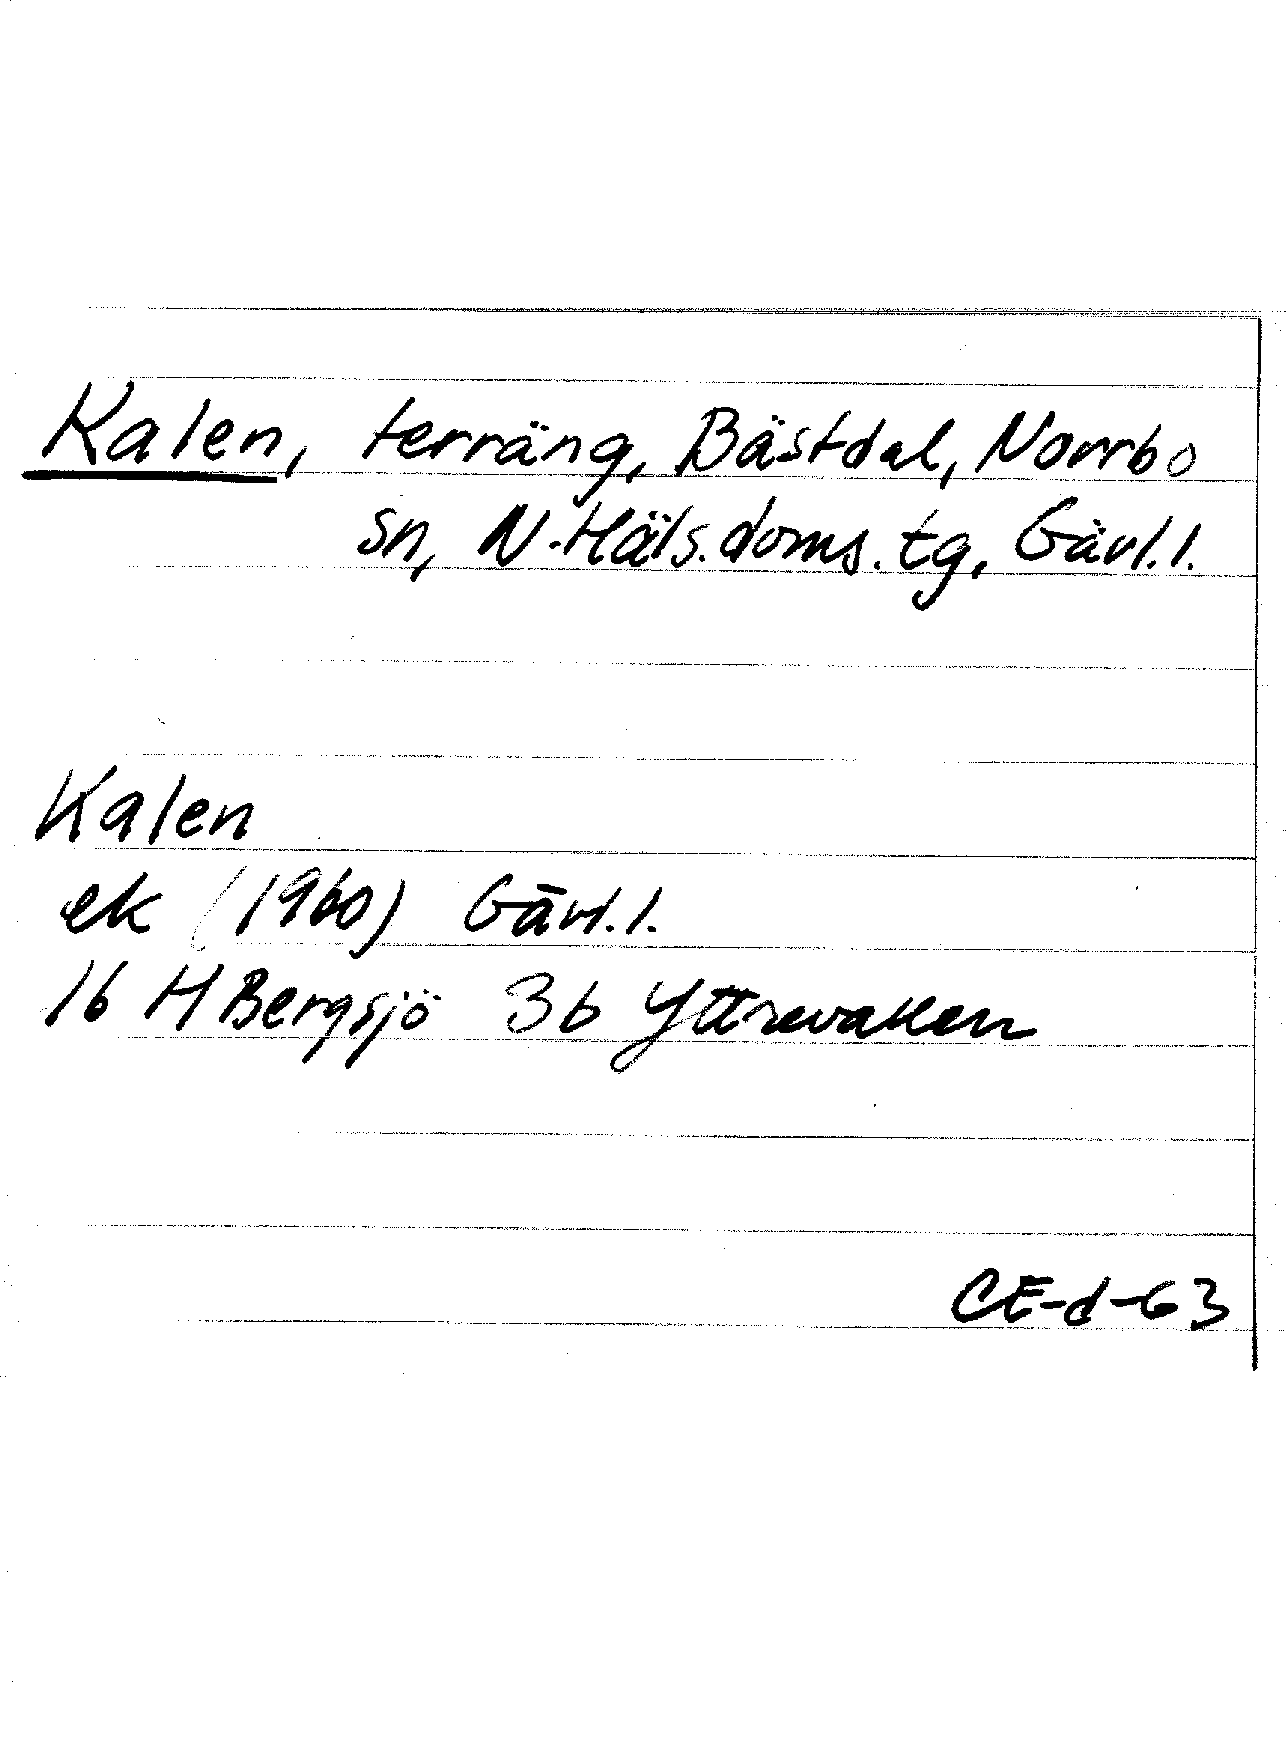 Kalen, terräng, Bästdal, Norrbo
sn, N. Häls. doms. tg, Gävl. l.
Kalen
ek (1960) Gävl. l.
16 H Bergsjö 3b Yttrevallen
CE-d-63